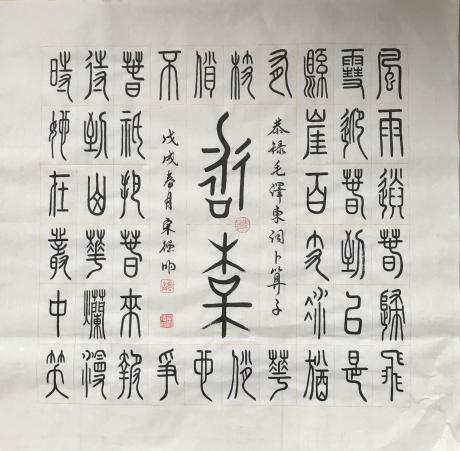 風雨送春歸飛
雪迎春到已是
縣崖百丈冰猶
有華
恭録毛澤東詞卜算子
枝俏
咏梅
俏也
戊戌春月宋
不爭
春祇把春來報
待到山華爛漫
時她在叢中笑